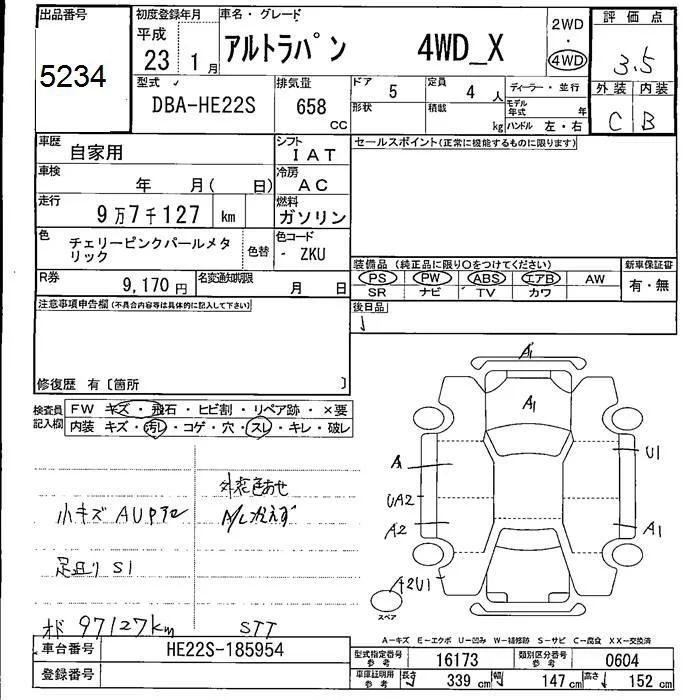 出品番号
5234
初度登録年月
平成
23年 1月
車名・グレード
アルトラパン 4WD_X
2WD
・
4WD
評価点
3.5
外装 内装
C B
型式
DBA-HE22S
排気量
658
CC
ドア
5
定員
4 人
形状
積載
kg
ディーラー・並行
モデル年式 年
ハンドル 左・右
車歴
自家用
シフト
IAT
セールスポイント(正常に機能するものに限ります)
車検
年 月( 日)
冷房
AC
走行
9万7千127 km
燃料
ガソリン
色
チェリーピンクパールメタリック
色替
色コード
- ZKU
R券
9,170円
名変通知期限
月 日
装備品 (純正品に限り○をつけてください)
PS PW ABS エアB AW
SR ナビ TV カワ
新車保証書
有・無
注意事項申告欄(不具合内容等は具体的に記入して下さい)
後日品
修復歴 有〔箇所 〕
検査員記入欄
FW キズ・飛石・ヒビ割・リペア跡・×要
内装 キズ・汚レ・コゲ・穴・スレ・キレ・破レ
外装色あせ
小キズ AUP
足廻り S1
97127km
STT
A1
A1
A
U1
UA2
A2
A1
A2U1
スペア
A-キズ E-エクボ U-凹み W-補修跡 S-サビ C-腐食 XX-交換済
車台番号
HE22S-185954
登録番号
型式指定番号 参考
16173
類別区分番号 参考
0604
車庫証明用 参考
長さ 339 cm 幅 147 cm 高さ 152 cm